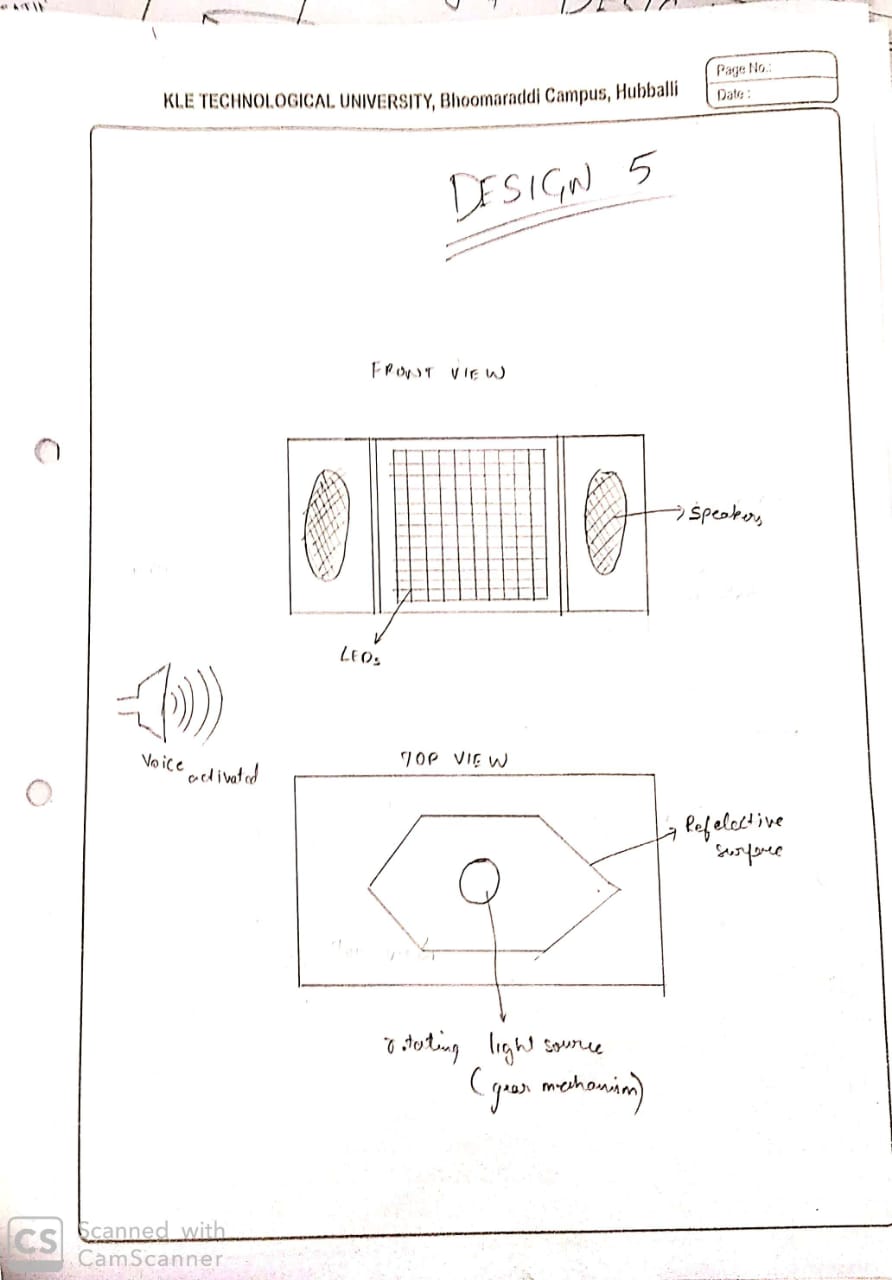 KLE TECHNOLOGICAL UNIVERSITY, Bhoomaraddi Campus, Hubballi
Page No.:
Date :
DESIGN 5
FRONT VIEW
Speakers
LEDs
Voice
activated
TOP VIEW
Refelective
surface
rotating light source
(gear mechanism)
CS
Scanned with
CamScanner